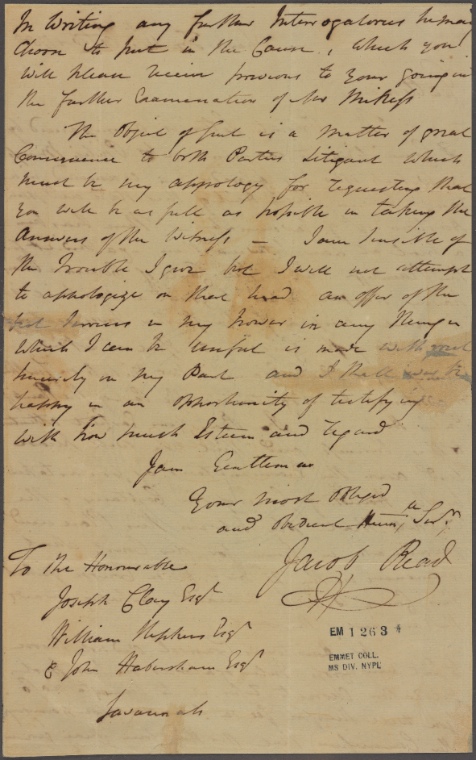 In writing any further Interrogatories he may
choose to put in the Cause, which you
will please receive previous to your going in
the further Examination of the Witness
The Object of Suit is a matter of great
Consequence to both Parties Litigant which
must be my appology for requesting that
you will be as full as possible in taking the
Answers of the Witness — I am sensible of
the Trouble I give but I will not attempt
to apologize on that head an offer of the
best services in my power in any thing in
which I can be usefull is made with great
sincerity on my Part and I shall ever be
happy in an Opportunity of testifying
with how much Esteem and regard
I am Gentlemen
Your most Obliged
and Obedient Hum: Serv:
Jacob Read
To the Honourable
Joseph Clay Esqr
William Esqr
& John Habersham Esqr
Savannah
EM 1263
EMMET COLL.
MS DIV. NYPL